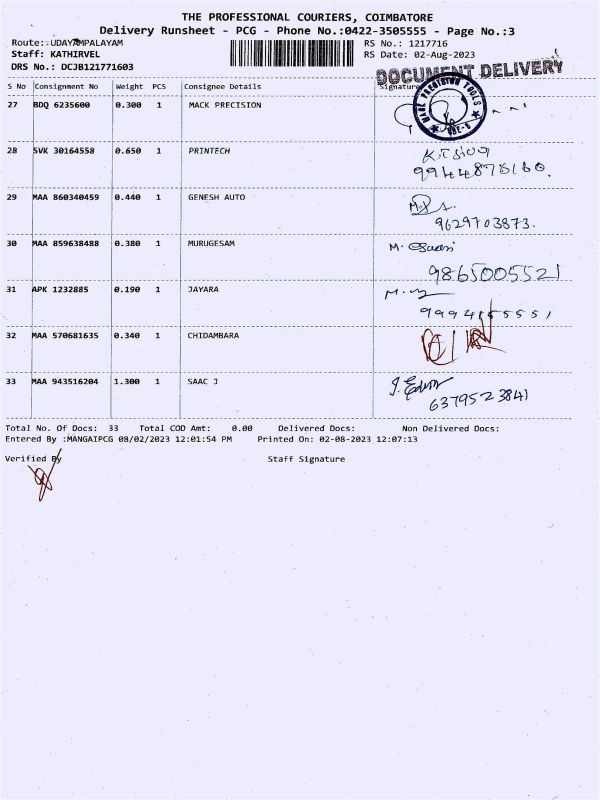 THE PROFESSIONAL COURIERS, COIMBATORE
Delivery Runsheet - PCG - Phone No.:0422-3505555 - Page No.:3
Route: UDAYAMPALAYAM RS No.: 1217716
Staff: KATHIRVEL RS Date: 02-Aug-2023
DRS No.: DCJB121771603 DOCUMENT DELIVERY
S No Consignment No Weight PCS Consignee Details Signature
27 BDQ 6235600 0.300 1 MACK PRECISION
28 SVK 30164558 0.650 1 PRINTECH
29 MAA 860340459 0.440 1 GENESH AUTO
9629703873.
30 MAA 859638488 0.380 1 MURUGESAM M.
9865005521
31 APK 1232885 0.190 1 JAYARA
32 MAA 570681635 0.340 1 CHIDAMBARA
33 MAA 943516204 1.300 1 SAAC J J. Edwin
6379523841
Total No. Of Docs: 33 Total COD Amt: 0.00 Delivered Docs: Non Delivered Docs:
Entered By :MANGAIPCG 08/02/2023 12:01:54 PM Printed On: 02-08-2023 12:07:13
Verified By Staff Signature